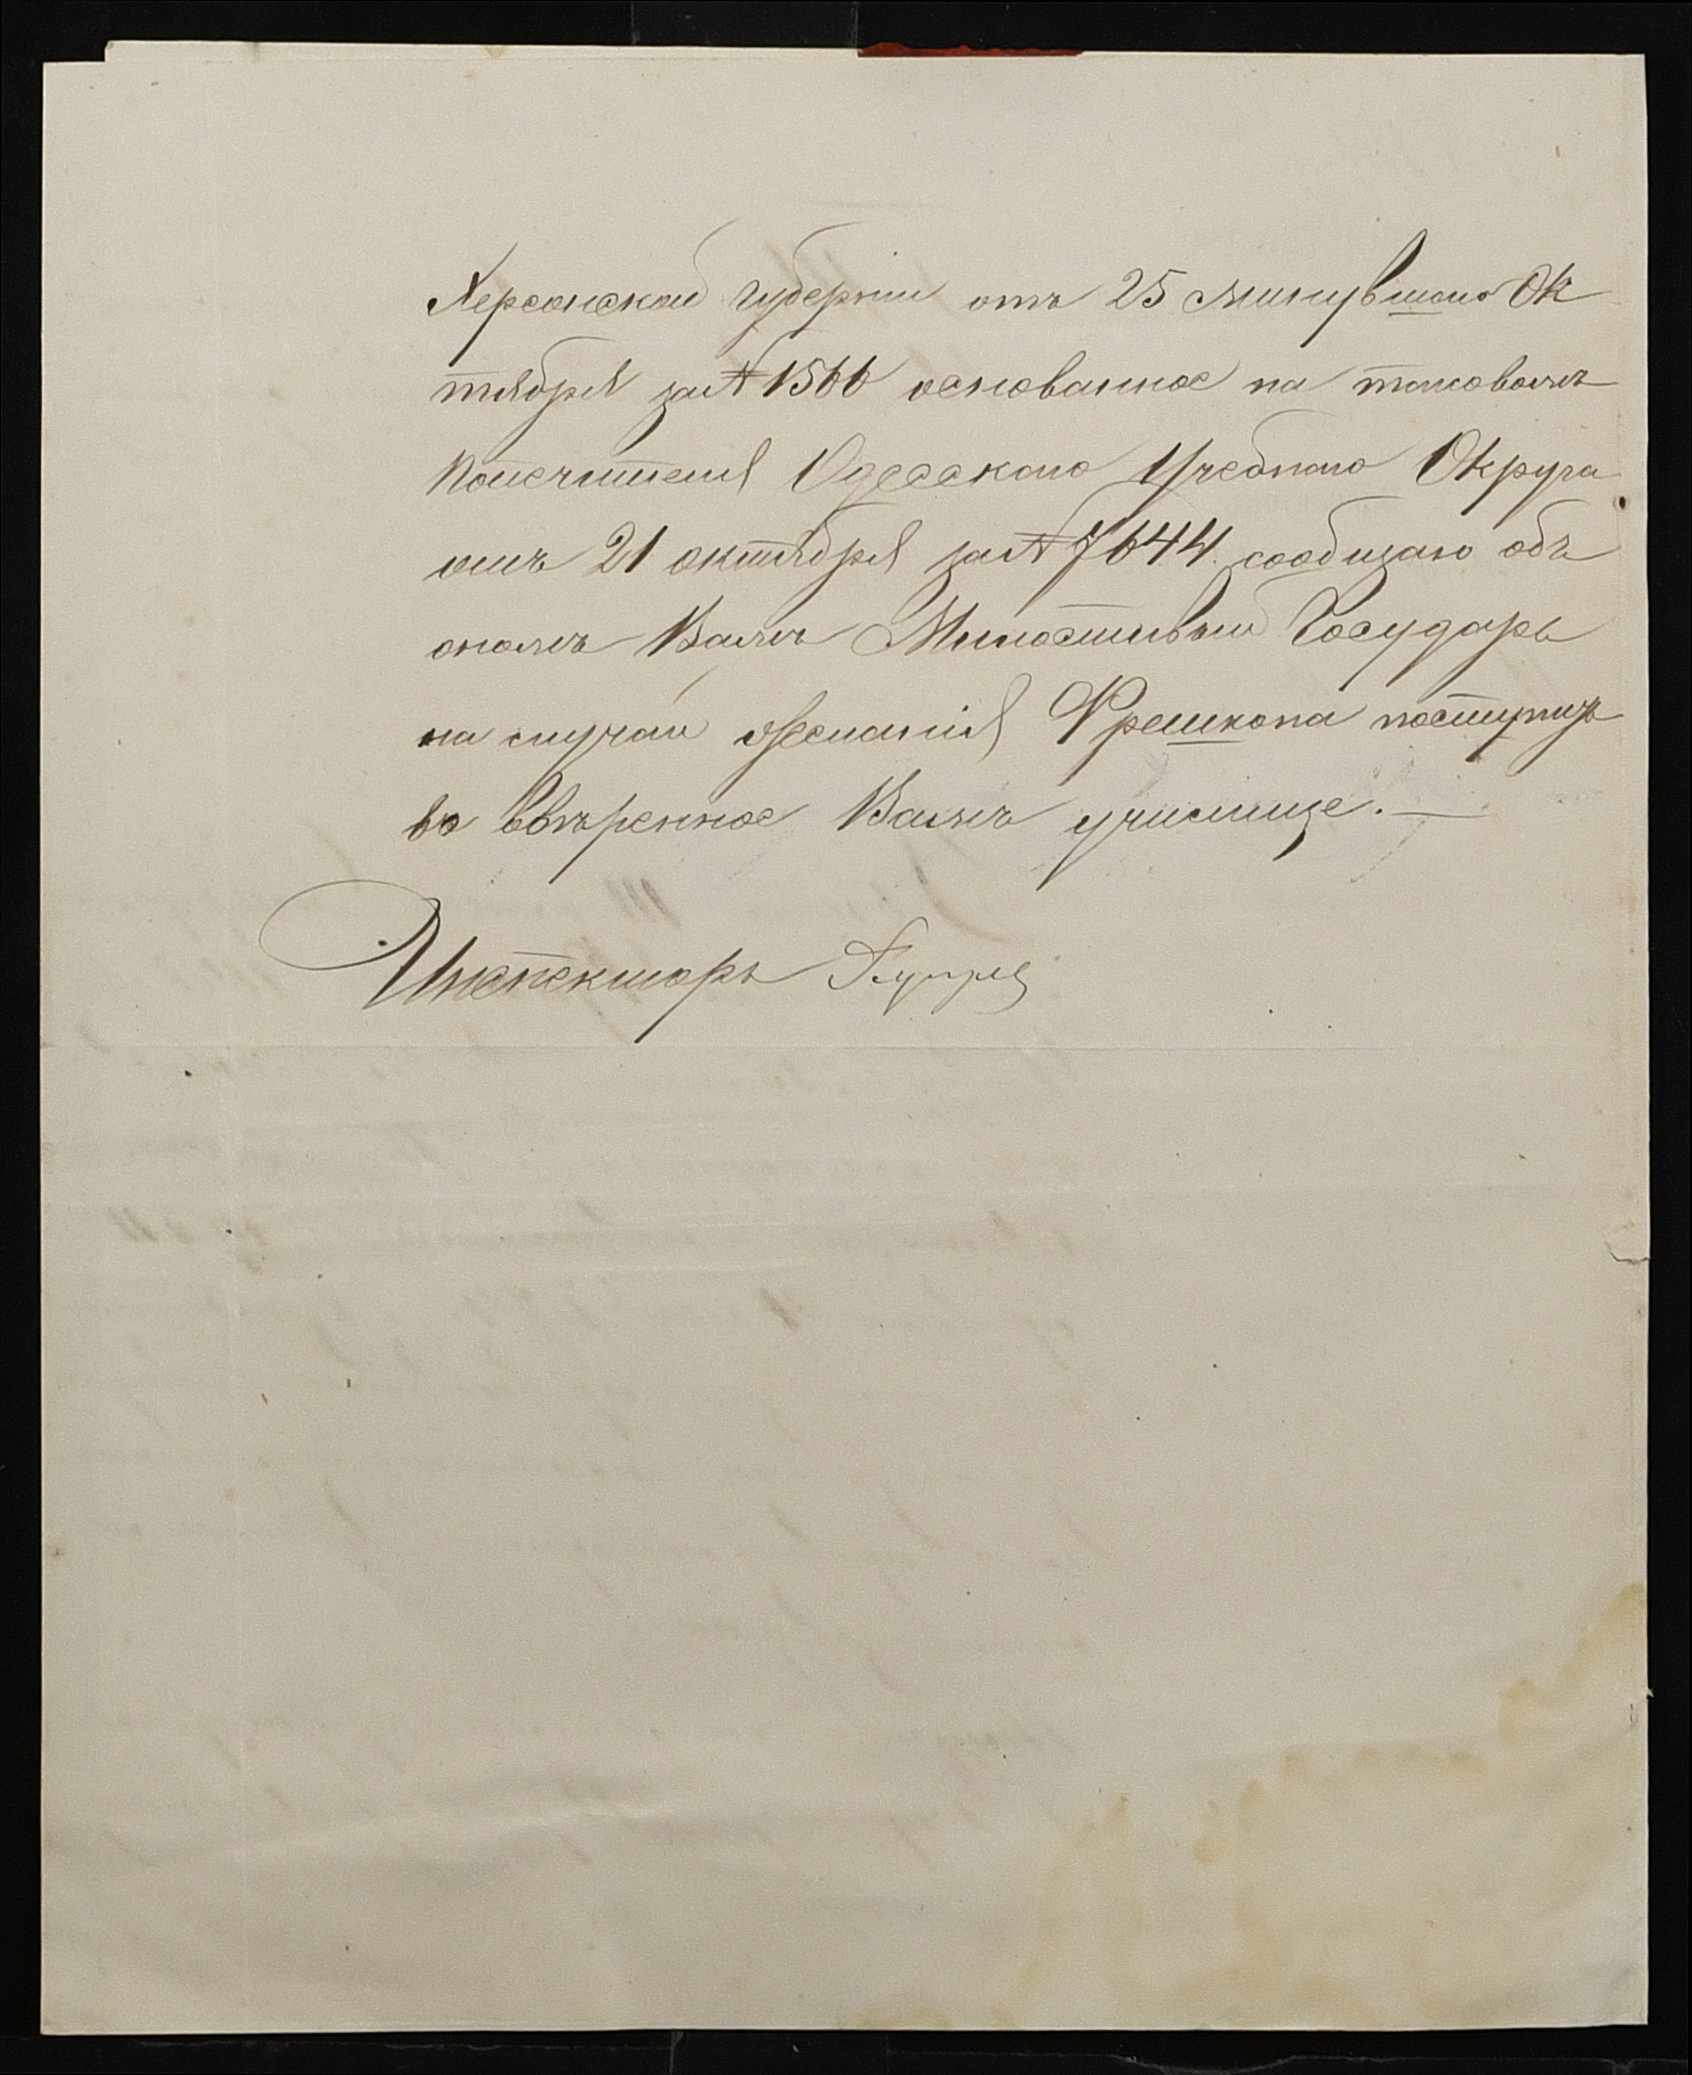 Херсонской губернии отъ 25 минувшаго Ок
тября за № 1566 основанное на таковомъ
Попечителя Одесскаго Учебнаго Округа
отъ 21 октября за № 7644. сообщаю объ
ономъ Вамъ Милостивый Государь
на случай желанія Фрешкопа поступить
во ввѣренное Вамъ училище.—
Инспекторъ